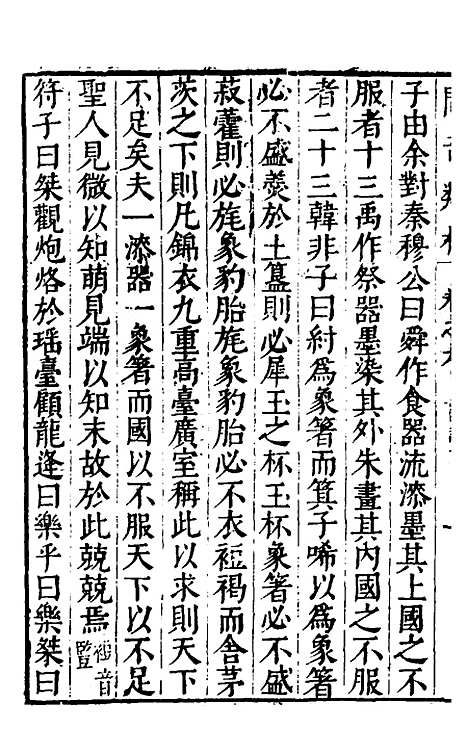 子由余對秦穆公曰舜作食器流漆墨其上國之不
服者十三禹作祭器墨染其外朱畫其內國之不服
者二十三韓非子曰紂爲象箸而箕子唏以爲象箸
必不盛羹於土簋則必犀玉之杯玉杯象箸必不盛
菽藿則必旄象豹胎旄象豹胎必不衣裋褐而舍茅
茨之下則凡錦衣九重高臺廣室稱此以求則天下
不足矣夫一漆器一象箸而國以不服天下以不足
聖人見微以知萌見端以知末故於此兢兢焉裋音豎
符子曰桀觀炮烙於瑤臺顧龍逢曰樂乎曰樂桀曰